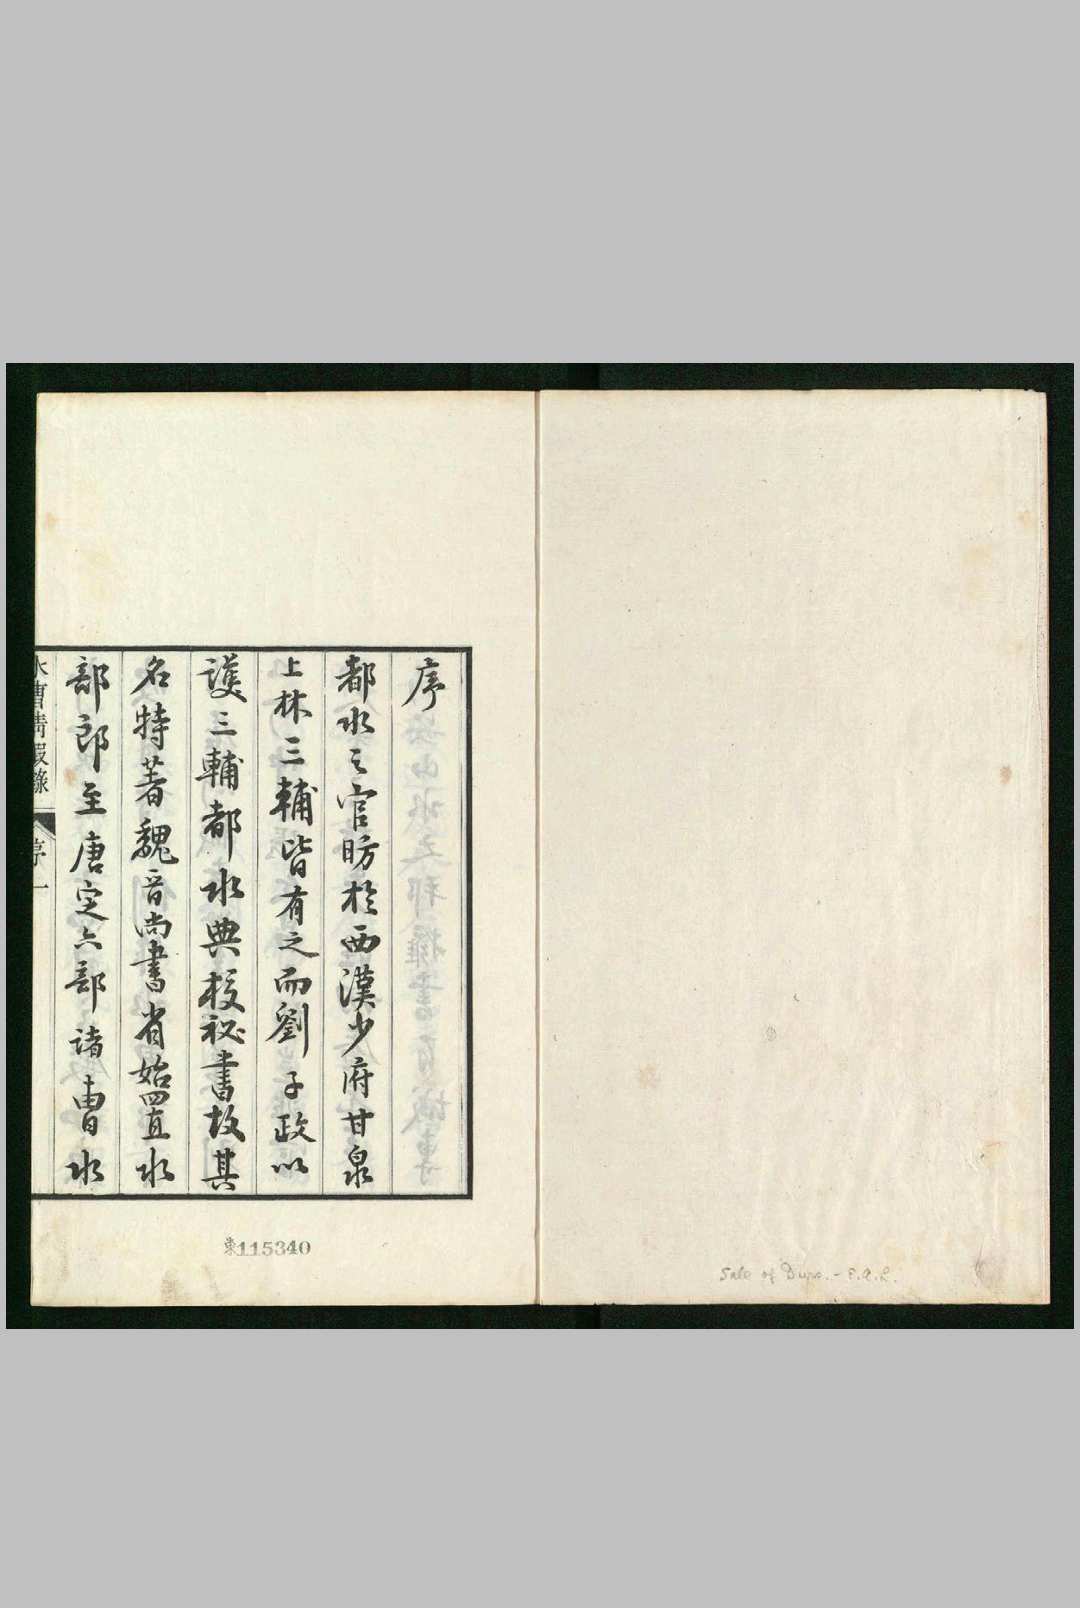 序
都水之官昉於西漢少府甘泉
上林三輔皆有之而劉子政以
護三輔都水典校祕書故其
名特著魏晉尚書省始置水
部郎至唐定六部諸曹水
水曹清暇錄 序 一
東115340
Sale of Dups. - E.A.L.